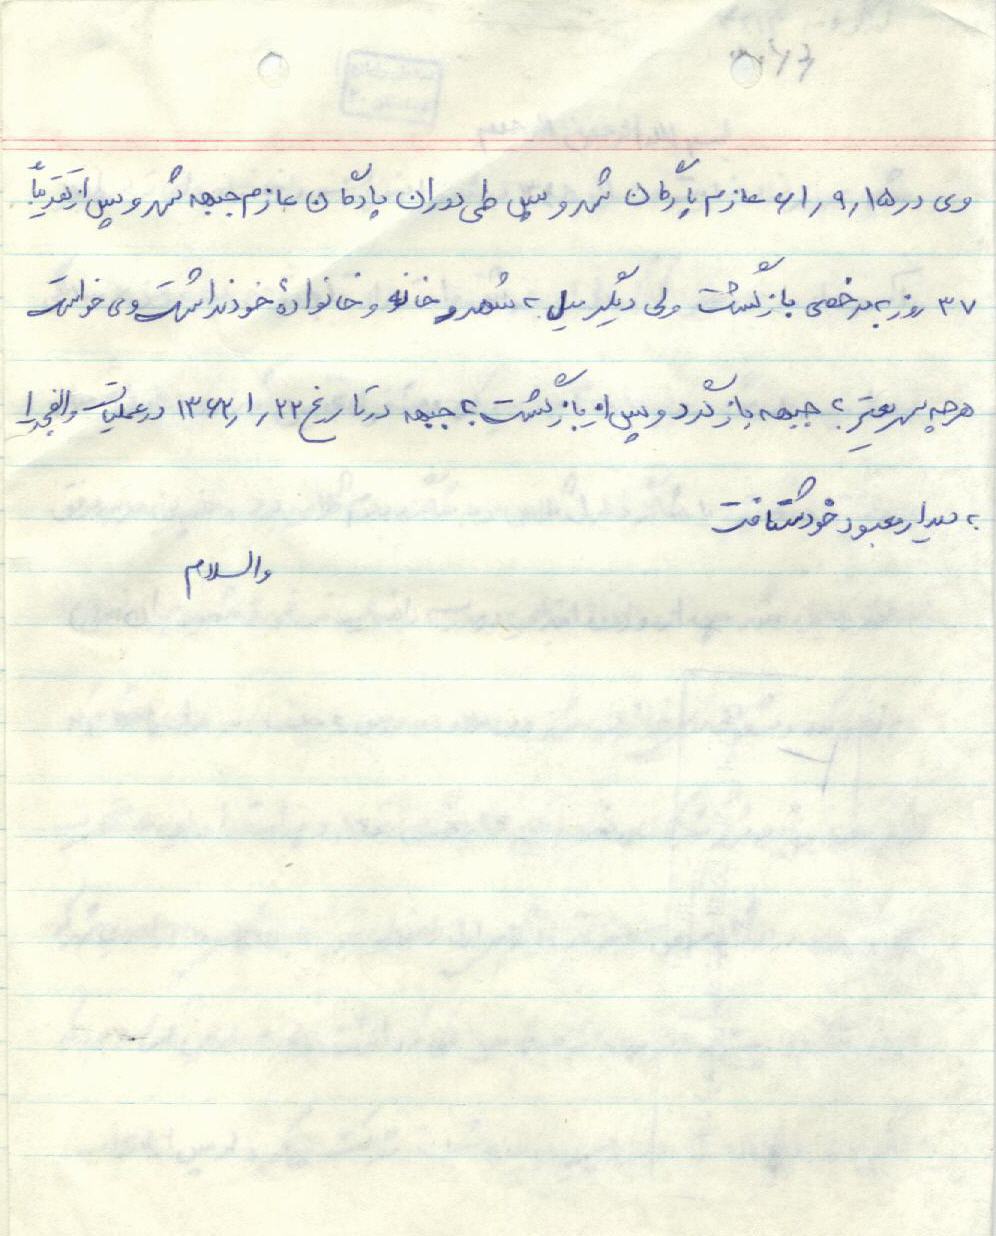 وی در ۱۵ر۹ر۶۱ عازم پادگان شد و پس طی دوران پادگان عازم جبهه شد و پس از تقریباً
۳۷ روز به مرخصی بازگشت ولی دیگر میل به شهر و خانه و خانوادهٔ خود نداشت و می خواست
هرچه سریعتر به جبهه بازگردد و پس از بازگشت به جبهه در تاریخ ۲۲ر۱ر۱۳۶۲ در عملیات والفجر ۱
به دیدار معبود خود شتافت
والسلام